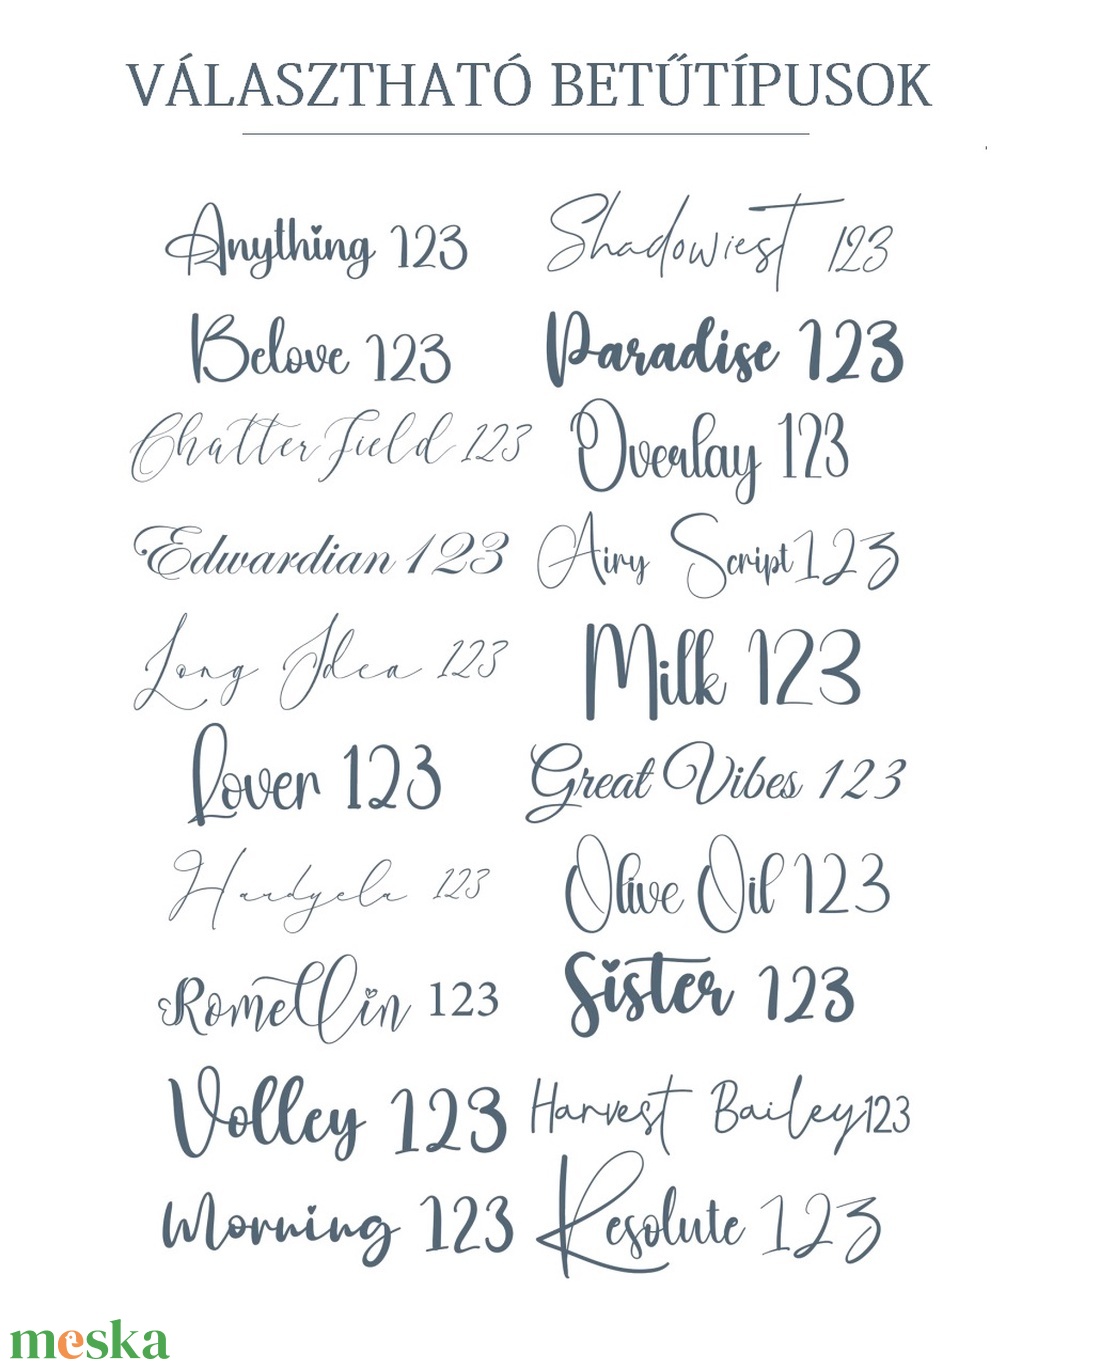 VÁLASZTHATÓ BETŰTÍPUSOK
Anything 123
Shadowiest 123
Belove 123
Paradise 123
Chatter Field 123
Overlay 123
Edwardian 123
Airy Script 123
Long Idea 123
Milk 123
Lover 123
Great Vibes 123
Hardyela 123
Olive Oil 123
Romellin 123
Sister 123
Volley 123
Harvest Bailey 123
Morning 123
Resolute 123
meska